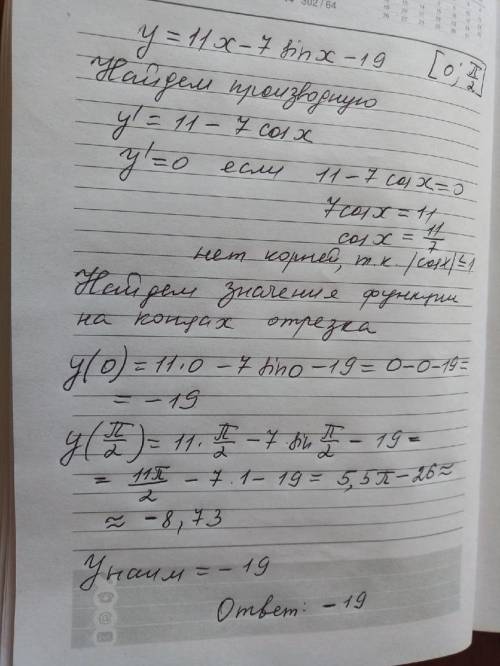 302 / 64
y = 11x - 7 sin x - 19 [0; π/2]
Найдем производную
y' = 11 - 7 cos x
y' = 0 если 11 - 7 cos x = 0
7 cos x = 11
cos x = 11/7
нет корней, т.к. |cos x| ≤ 1
Найдем значения функции
на концах отрезка
y(0) = 11·0 - 7 sin 0 - 19 = 0 - 0 - 19 =
= -19
y(π/2) = 11·π/2 - 7 sin π/2 - 19 =
= 11π/2 - 7·1 - 19 = 5,5π - 26 ≈
≈ -8,73
Yнаим = -19
Ответ: -19